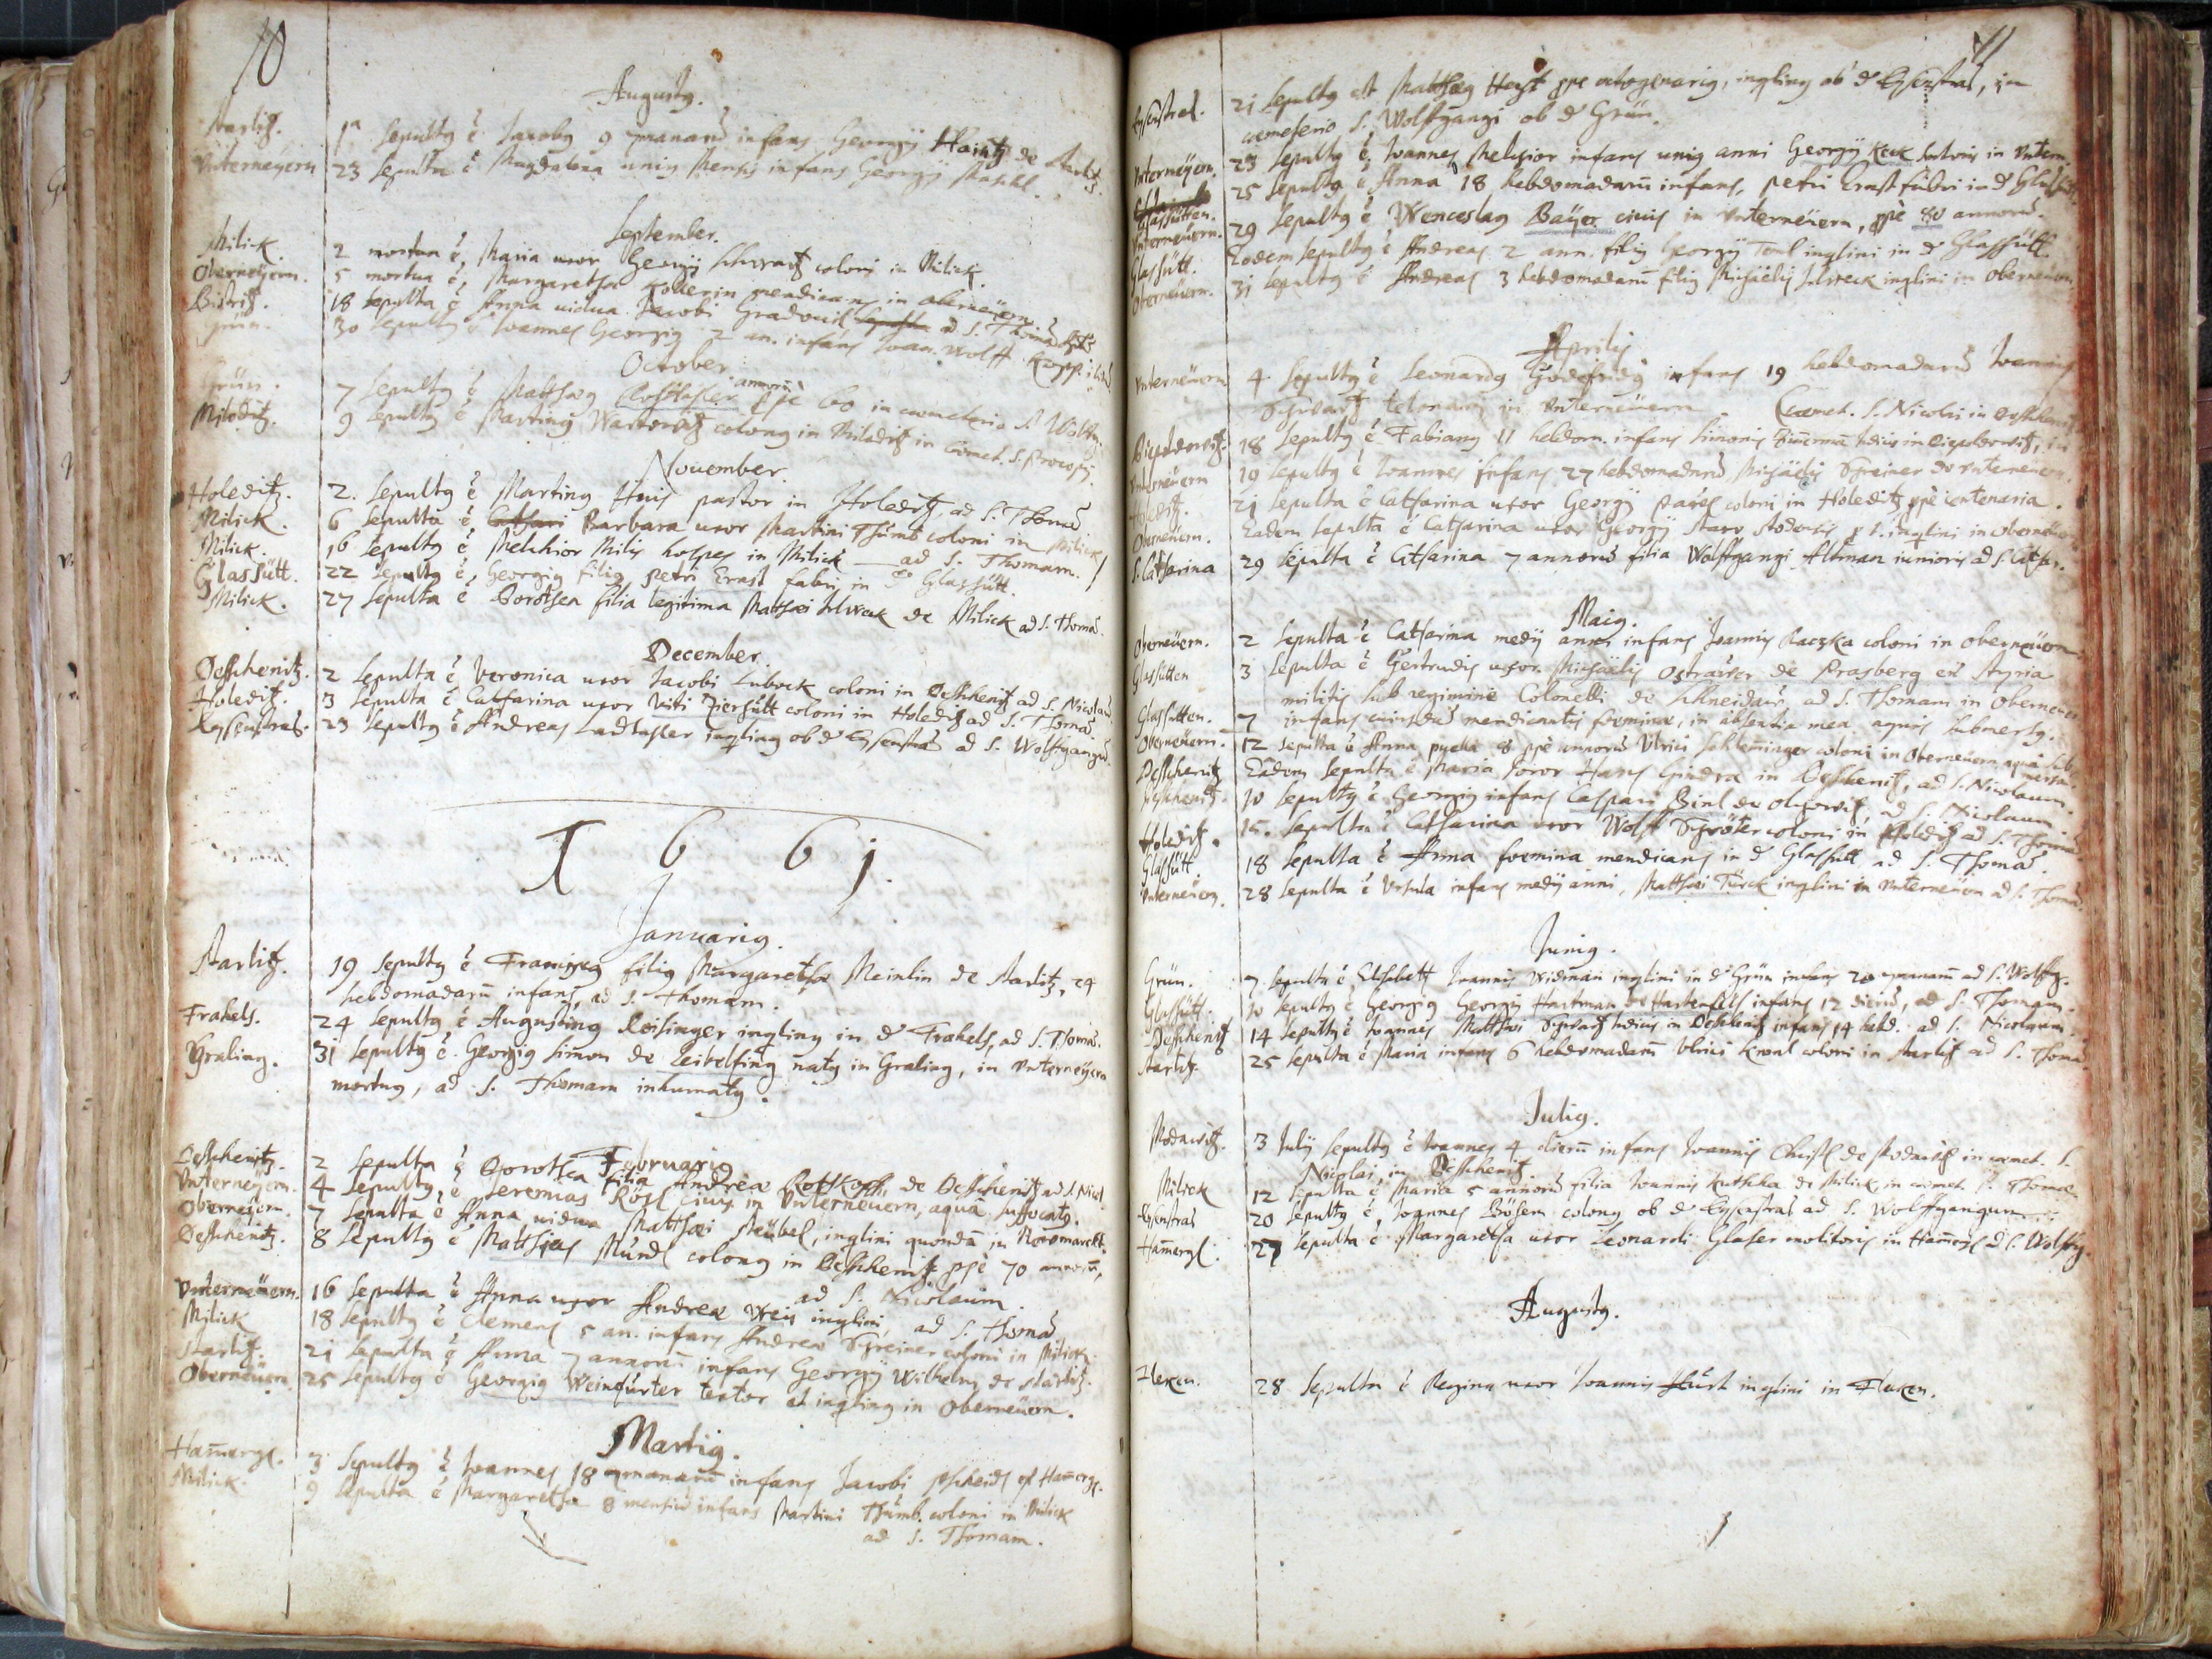 10
Augustg.
Starlitz. 1a Sepultg ẽ Jacobg 9 7manarũ infans Georgÿ Haintz de Starlitz.
Vnterneÿern 23 Sepulta ẽ Magdalena unig Mensis infans Georgÿ
September.
Milick. 2 mortua ẽ, Maria uxor Georgÿ Schwartz coloni in Milick.
Oberneÿern. 5 mortua ẽ, Margaretha mendicans in oberneüern
Bistritz. 18 Sepulta ẽ Anna uidua Jacobi ad S. Thomã
Grün. 30 Sepultg ẽ Joannes Georgig 2 an. infans Joan. Wolff
October.
Grün. 7 Sepultg ẽ Matthæg Rosthaser ppe 60 annorũ in cœmeterio S. Wolffg.
Miloditz. 9 Sepultg ẽ Marting colong in Miladitz in Cœmet. S. Procopÿ.
November.
Holeditz. 2. Sepultg ẽ Marting Huis pastor in Holeditz, ad S. Thomã
Milick. 6 Sepulta ẽ Cathari Barbara uxor Martini Thumb coloni in Milick
Milick. 16 Sepultg ẽ, Melchior Milis hospes in Milick — ad S. Thomam.
Glassütt. 22 Sepultg ẽ, Georgig filig Petri Ernst fabri in Glassütt.
Milick. 27 Sepulta ẽ Dorothea filia legitima Mathæi Schreck de Milick ad S. Thomã.
December.
Deschenitz. 2 Sepulta ẽ Veronica uxor Jacobi Lubock coloni in Deschenitz ad S. Nicolaũ.
Holeditz. 3 Sepulta ẽ Catharina uxor Viti Ziershütt coloni in Holeditz ad S. Thomã.
Eysenstras. 23 Sepultg ẽ Andreas Ladthaser inqling ob d Eysenstras ad S. Wolfgangũ.
1661.
Januarig.
Starlitz. 19 Sepultg ẽ Franciscg filig Margaretha Meinlin de Starlitz, 24
hebdomadarũ infans, ad S. Thomam.
Frahels. 24 Sepultg ẽ Augusting Reisinger inqling in d Frahels, ad S. Thomã.
Graling. 31 Sepultg ẽ. Georgig Simon de Leibelfing natg in Graling, in Vnterneÿern
mortug, ad S. Thomam inhumatg.
Februarig
Deschenitz. 2 Sepulta ẽ Dorothea filia Andreæ Rottkoph de Deschenitz ad S. Nicol
Vnterneÿern. 4 Sepultg ẽ Jeremias Rösl ciuis in Vnterneuern, aqua suffocatg.
Oberneÿern. 7 Sepulta ẽ Anna uidua Matthæi Meübel, inqlini quondã in Novomarckt.
Deschenitz. 8 Sepultg ẽ Matthias Mündl colong in Deschenitz ppe 70 annorũ,
ad S. Nicolaum.
Vnterneüern. 16 Sepulta ẽ Anna uxor Andreæ Weis inqlini, ad S. Thomã
Milick 18 Sepultg ẽ Clemens 5 an. infans Andreæ Schreiner coloni in Milick.
Starlitz. 21 Sepulta ẽ Anna 7 annorũ infans Georgÿ Wilhelm de Starlitz.
Oberneüern. 25 Sepultg ẽ Georgig Weinfurter textor et inqling in Oberneüern.
Martig.
Ham̃ergl. 3 Sepultg ẽ Joannes 18 7manarũ infans Jacobi Pscheidl of Ham̃ergl.
Milick. 9 Sepulta ẽ Margaretha 8 mensiũ infans Martini Thumb. coloni in Milick
ad S. Thomam.
11
Eysenstras. 21 Sepultg est Matthæg ppe octogenarig, inqling ob d Eysenstras, in
cœmeterio S. Wolffgangi ob d Grün.
Vnterneÿern. 23 Sepultg ẽ, Joannes Melchior infans unig anni Georgÿ Keck in Vntern.
Glassütten. 25 Sepultg ẽ Anna 18 hebdomadarũ infans, petri Ernst fabri in d Glassütt.
Vnterneüern. 29 Sepultg ẽ Wenceslag Baÿer ciuis in Vnterneüern, ppe 80 annorũ.
Glassütt. Eodem Sepultg ẽ Andreas 2 ann. filig Georgÿ inqlini in d Glassütt.
Oberneüern. 31 Sepultg ẽ Andreas 3 hebdomadarũ filig Michaëlis Schreck inqlini in Oberneüern
Aprilis
Vnterneüern 4. Sepultg ẽ Leonardg Godefridg infans 19 hebdomadarũ Joannis
Schwartz telonarÿ in Vnterneüern. (cœmet. S. Nicolai in Deschenitz
18 Sepultg ẽ Fabiang 11 hebdom. infans Simonis
Vnterneüern 19 Sepultg ẽ Joannes infans 27 hebdomadarũ Michaëlis Schreiner de Vnterneüern.
Holeditz. 21 Sepulta ẽ Catharina uxor Georgÿ coloni in Holeditz ppe centenaria.
Oberneüern. Eadem Sepulta ẽ Catharina uxor Georgÿ inqlini in oberneüern
S. Catharina 29 Sepulta ẽ Catharina 7 annorũ filia Wolffgangi Altman iunioris ad S. Cathar.
Maig.
Oberneüern. 2 Sepulta ẽ Catharina medÿ anni infans Joannis Raczka coloni in Oberneüern
Glassütten 3 Sepulta ẽ Gertrudis uxor Michaëlis de Prasberg ex Styria
militis sub regimine Colonelli de Schneidau, ad S. Thomam in Oberneüern
Glassütten. 7 infans cuiusdã mendicantis fœminæ, in absentia mea aquis submersg.
Oberneüern. 12 Sepulta ẽ Anna puella 8 ppe annorũ Vlrici Schlem̃inger coloni in Oberneüern aqua submersa.
Deschenitz Eâdem Sepulta ẽ Maria Soror Hans Gindra in Deschenitz, ad S. Nicolaum.
Deschenitz. 10 Sepultg ẽ Georgig infans Caspari Binl de ad S. Nicolaum.
Holeditz. 15. Sepulta ẽ Catharina uxor Wolff Schröter coloni in Holeditz ad S. Thomã.
Glassütt. 18 Sepulta ẽ Anna fœmina mendicans in d Glassütt ad S. Thomã.
Vnterneüern. 28 Sepulta ẽ Vrsula infans medÿ anni, Matthæi Türck inqlini in Vnterneüern ad S. Thomã
Junig.
Grün. 7. Sepulta ẽ Elisabeth Joannis Widman inqlini in d Grün infans 20 7manarũ ad S. Wolffg.
Glassütt. 10 Sepultg ẽ Georgig Georgÿ Hartman de Hartenfels infans 12 dierũ, ad S. Thomam.
Deschenitz 14 Sepultg ẽ Joannes Matthæi Schwartz in Deschenitz infans 14 hebd. ad S. Nicolaum.
Starlitz. 25 Sepulta ẽ Maria infans 6 hebdomadarũ Vlrici coloni in Starlitz ad S. Thomã.
Julig.
3 Julÿ Sepultg ẽ Joannes 4 dierũ infans Joannis Christl de in cœmet. S.
Nicolai in Deschenitz.
Milick 12 Sepulta ẽ Maria 5 annorũ filia Joannis Kutscha de Milick in cœmet. S. Thomæ.
Eysenstras 20 Sepultg ẽ, Joannes Bösem colong ob d Eysenstras ad S. Wolffgangum.
Ham̃ergl. 27 Sepulta ẽ Margaretha uxor Leonardi Glaser molitoris in Ham̃ergl ad S. Wolffg.
Augustg.
Fleken. 28 Sepulta ẽ Regina uxor Joannis inqlini in Fleken.